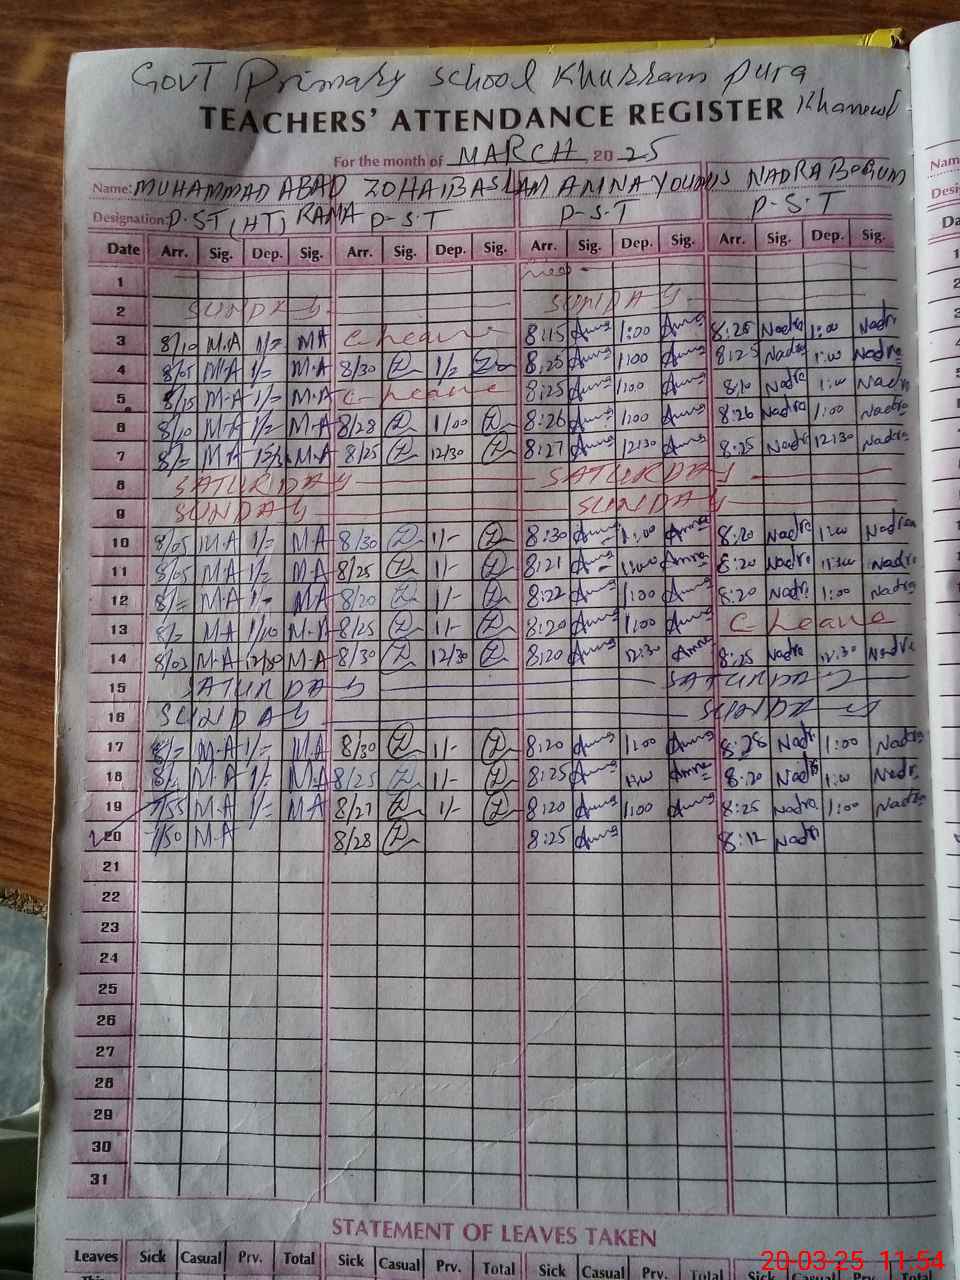 GovT Primary school Khurram pura
TEACHERS' ATTENDANCE REGISTER Khanewal
For the month of MARCH 2025
Name: MUHAMMAD ABAD ZOHAIB ASLAM AMNA YOUNUS NADRA BEGUM
Designation: P.ST (HT) RAMA P-S-T P-S-T P-S-T
Date Arr. Sig. Dep. Sig. Arr. Sig. Dep. Sig. Arr. Sig. Dep. Sig. Arr. Sig. Dep. Sig.
1
2 SUNDAY SUNDAY
3 8/10 M.A 1/= MA C-Leave 8:15 Amna 1:00 Amna 8:25 Nadra 1:00 Nadra
4 8/05 M.A 1/= M.A 8/30 Z 1/= Z 8:25 Amna 1:00 Amna 8:25 Nadra 1:00 Nadra
5 8/15 M-A 1/= M.A C-Leave 8:25 Amna 1:00 Amna 8:10 Nadra 1:00 Nadra
6 8/10 M-A 1/= M-A 8/28 Z 1/00 Z 8:26 Amna 1:00 Amna 8:26 Nadra 1:00 Nadra
7 8/= MA M.A 8/25 Z 12/30 Z 8:27 Amna 12:30 Amna 8:25 Nadra 12:30 Nadra
8 SATURDAY SATURDAY
9 SUNDAY SUNDAY
10 8/05 M.A 1/= M.A 8/30 Z 1/- Z 8:30 Amna 1:00 Amna 8:20 Nadra 1:00 Nadra
11 8/05 M.A 1/= MA 8/25 Z 1/- Z 8:21 Amna 1:00 Amna 8:20 Nadra 1:00 Nadra
12 8/= M.A 1/- MA 8/20 Z 1/- Z 8:22 Amna 1:00 Amna 8:20 Nadra 1:00 Nadra
13 8/= M-A 1/10 M.A 8/25 Z 1/- Z 8:20 Amna 1:00 Amna C-Leave
14 8/03 M-A 12/30 M-A 8/30 Z 12/30 Z 8:20 Amna 12:30 Amna 8:25 Nadra 12:30 Nadra
15 SATURDAY SATURDAY
16 SUNDAY SUNDAY
17 8/= M-A 1/= MA 8/30 Z 1/- Z 8:20 Amna 1:00 Amna 8:28 Nadra 1:00 Nadra
18 8/= M.A 1/- M.A 8/25 Z 1/- Z 8:25 Amna 1:00 Amna 8:20 Nadra 1:00 Nadra
19 7/55 M.A 1/= MA 8/27 Z 1/- Z 8:20 Amna 1:00 Amna 8:25 Nadra 1:00 Nadra
20 7/50 M.A 8/28 Z 8:25 Amna 8:12 Nadra
21
22
23
24
25
26
27
28
29
30
31
STATEMENT OF LEAVES TAKEN
Leaves Sick Casual Prv. Total Sick Casual Prv. Total Sick Casual Prv. Total Sick Casual Prv. Total
20-03-25 11:54